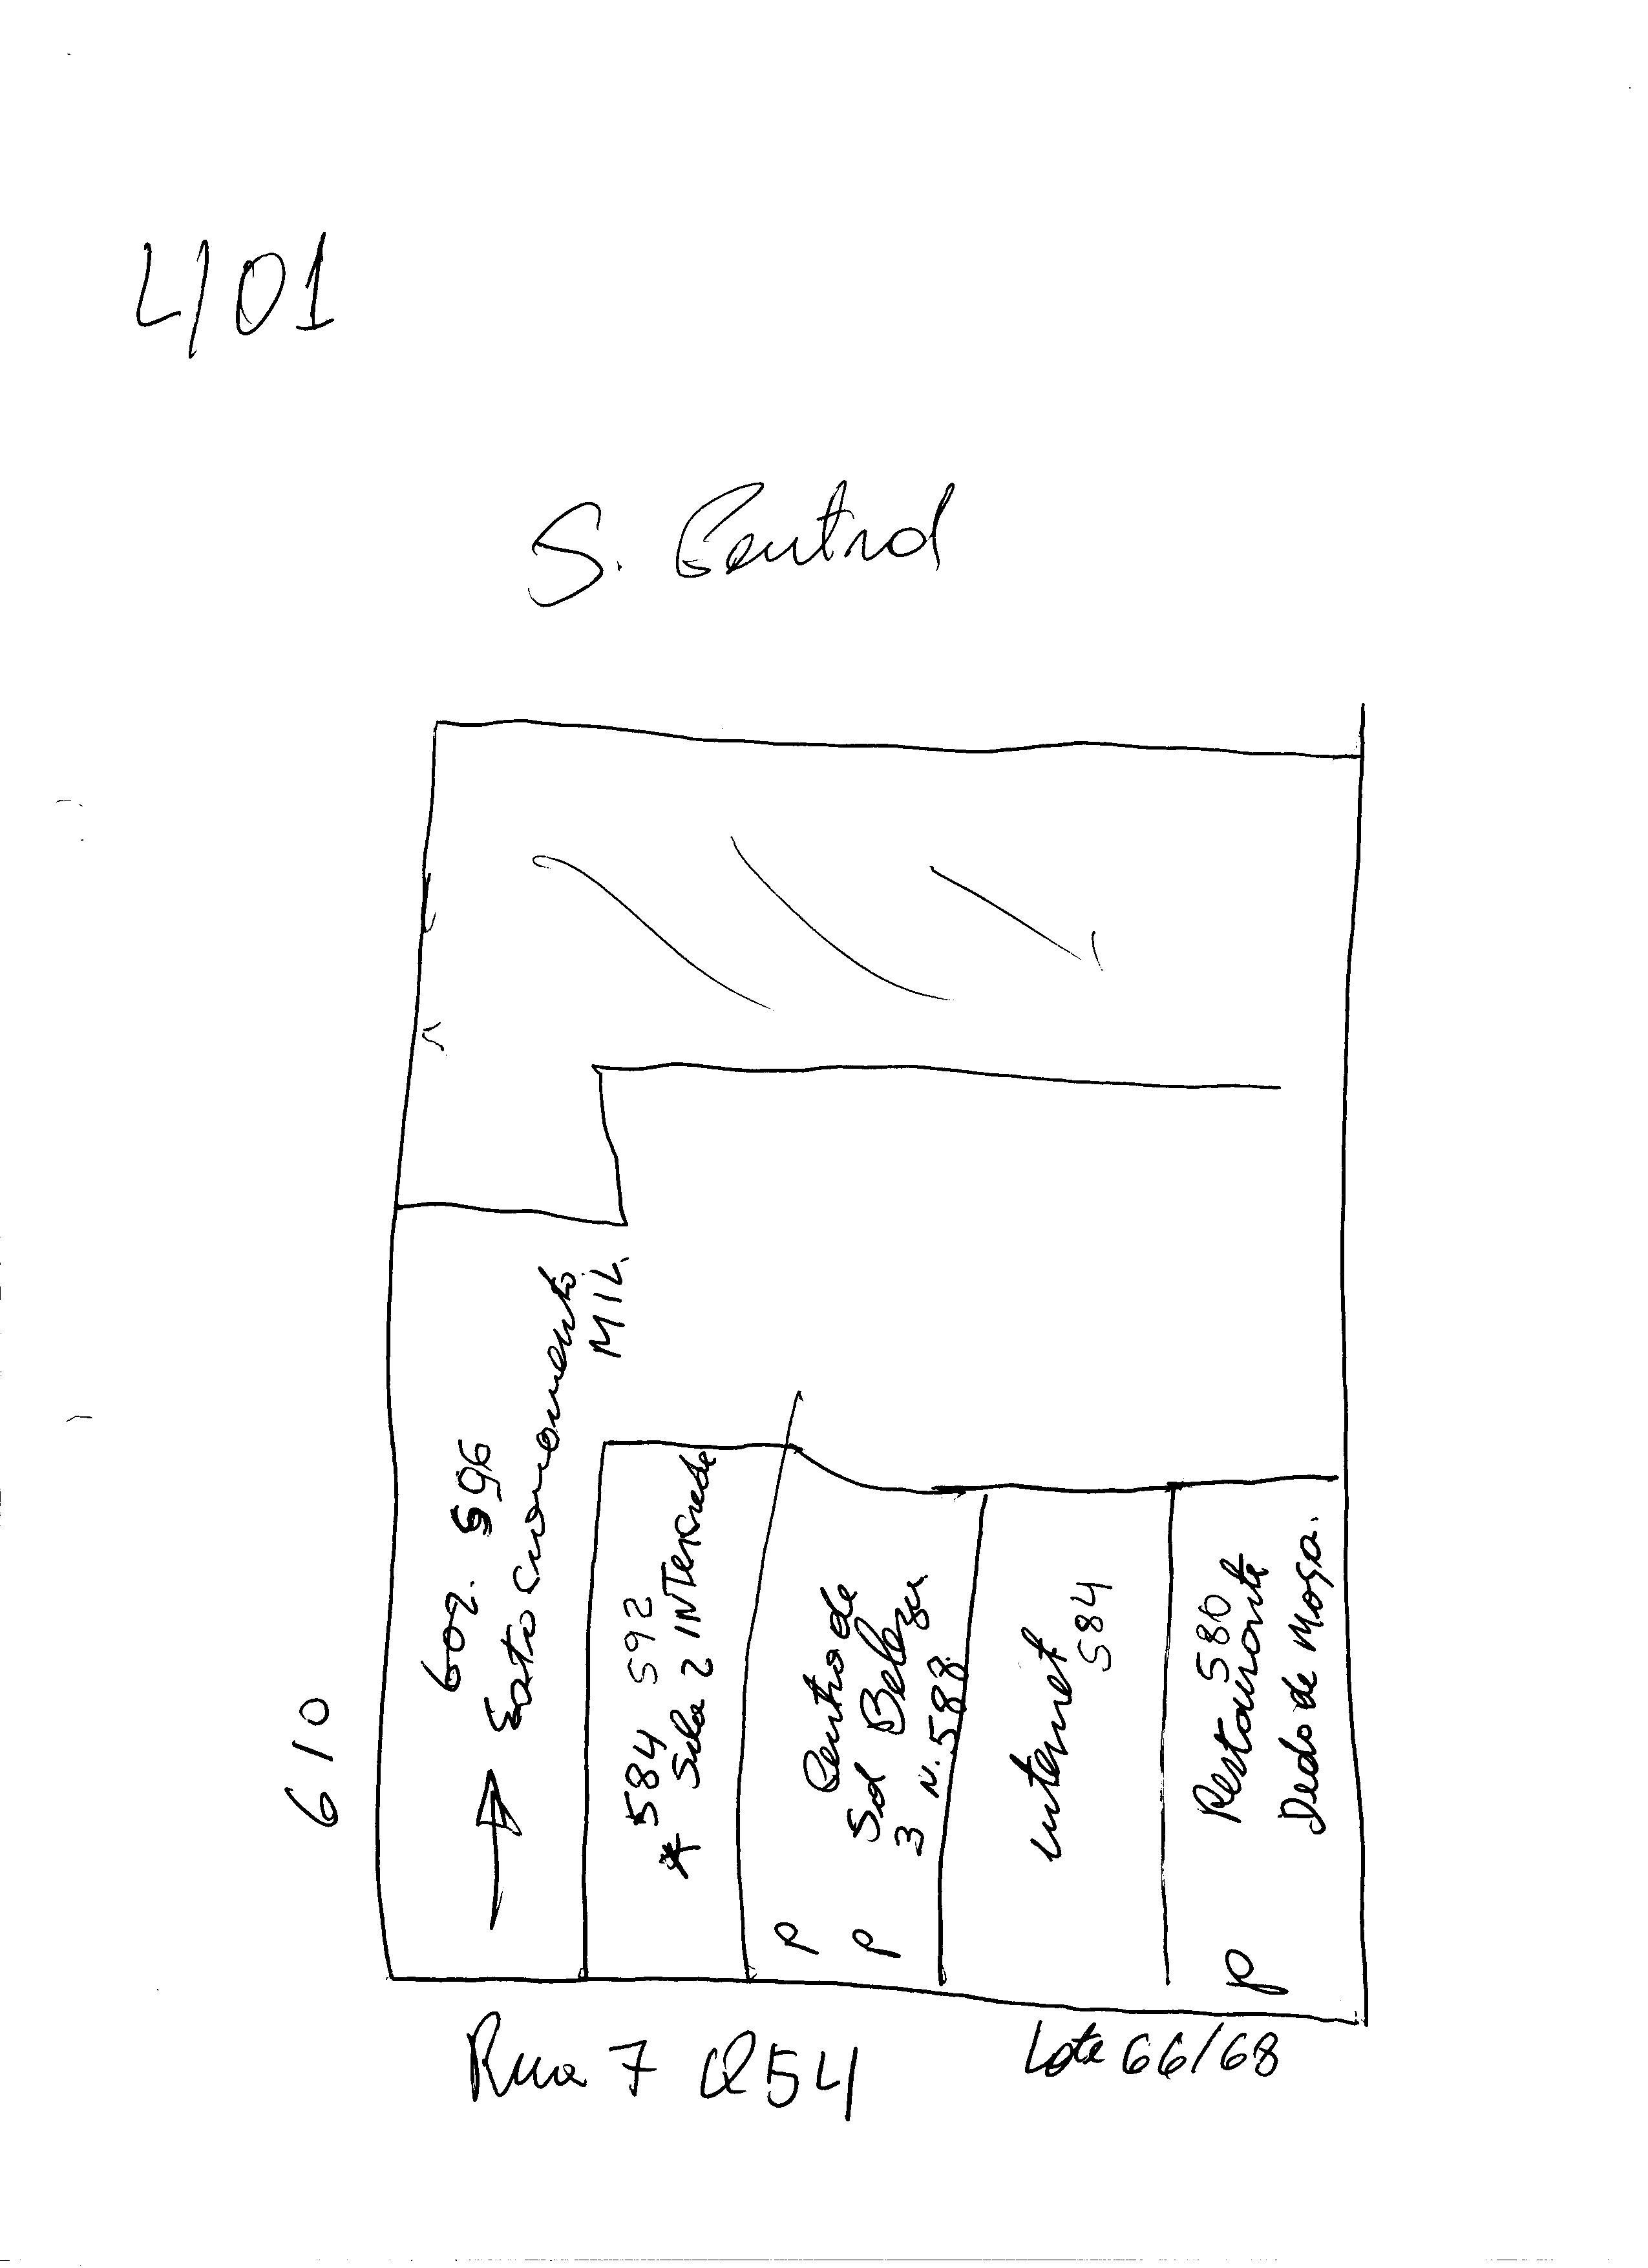 401
S. Central
610
602. 596
Estacionamento
MIL.
584 592
* Sala 2 INTercrede
Centro de
Sol Beleza
3 N. 588
P
P
internet
584
580
Restaurante
Dedo de Moça.
P
Rua 7 Q54
Lote 66/68